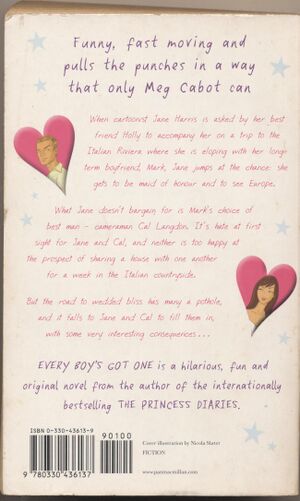 Funny, fast moving and
pulls the punches in a way
that only Meg Cabot can
When cartoonist Jane Harris is asked by her best
friend Holly to accompany her on a trip to the
Italian Riviera where she is eloping with her long-
term boyfriend, Mark, Jane jumps at the chance: she
gets to be maid of honour and to see Europe.
What Jane doesn't bargain for is Mark's choice of
best man – cameraman Cal Langdon. It's hate at first
sight for Jane and Cal, and neither is too happy at
the prospect of sharing a house with one another
for a week in the Italian countryside.
But the road to wedded bliss has many a pothole,
and it falls to Jane and Cal to fill them in,
with some very interesting consequences ...
EVERY BOY'S GOT ONE is a hilarious, fun and
original novel from the author of the internationally
bestselling THE PRINCESS DIARIES.
ISBN 0-330-43613-9
90100
9 780330 436137
Cover illustration by Nicola Slater
FICTION
www.panmacmillan.com